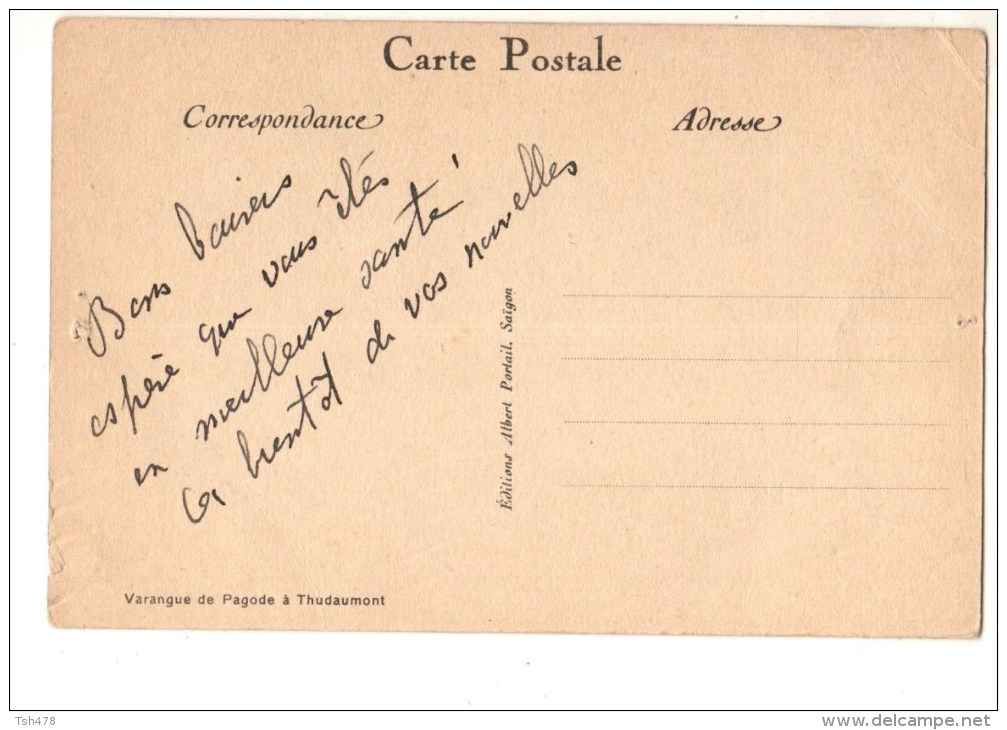 Carte Postale
Correspondance
Adresse
Bons baisers
espère que vous êtes
en meilleure santé
à bientôt de vos nouvelles
Éditions Albert Portail, Saïgon
Varangue de Pagode à Thudaumont
Tsh478
www.delcampe.net